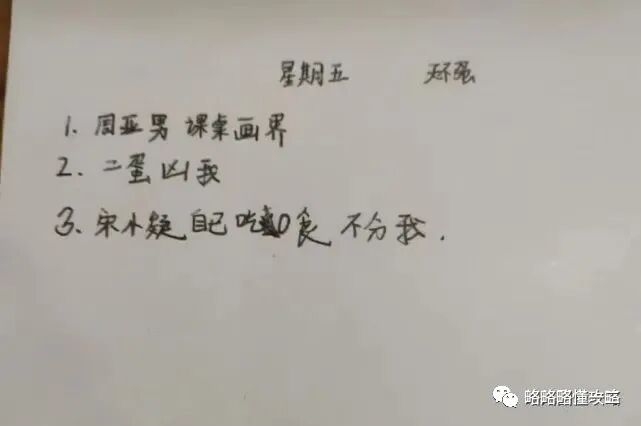 星期五 天不强
1. 周亚男 课桌画界
2. 二蛋凶我
3. 宋小疑 自己吃 食 不分我.
略略略懂攻略